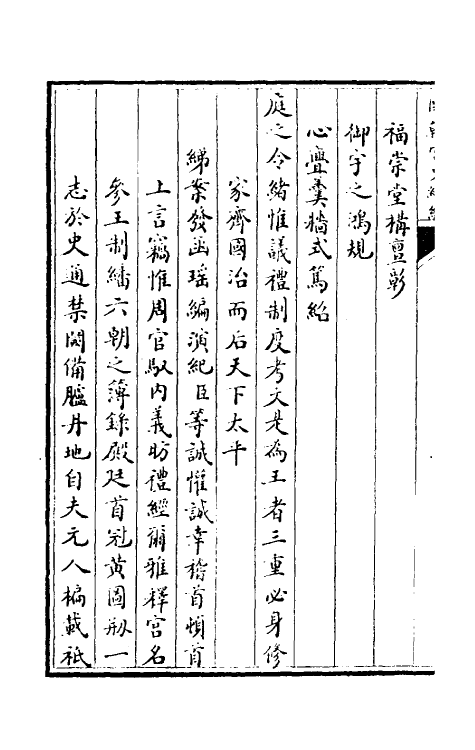 福崇堂構亶彰
御宇之鴻規
心亹羹牆式篤紹
庭之令緒惟議禮制度考文是為王者三重必身修
家齊國治而后天下太平
綈案發函瑤編演紀臣等誠懽誠幸稽首頓首
上言竊惟周官馭內義昉禮經爾雅釋宮名
參王制繙六朝之簿錄殿廷首冠黃圖刱一
志於史通禁闥備臚丹地自夫元人楄載祇